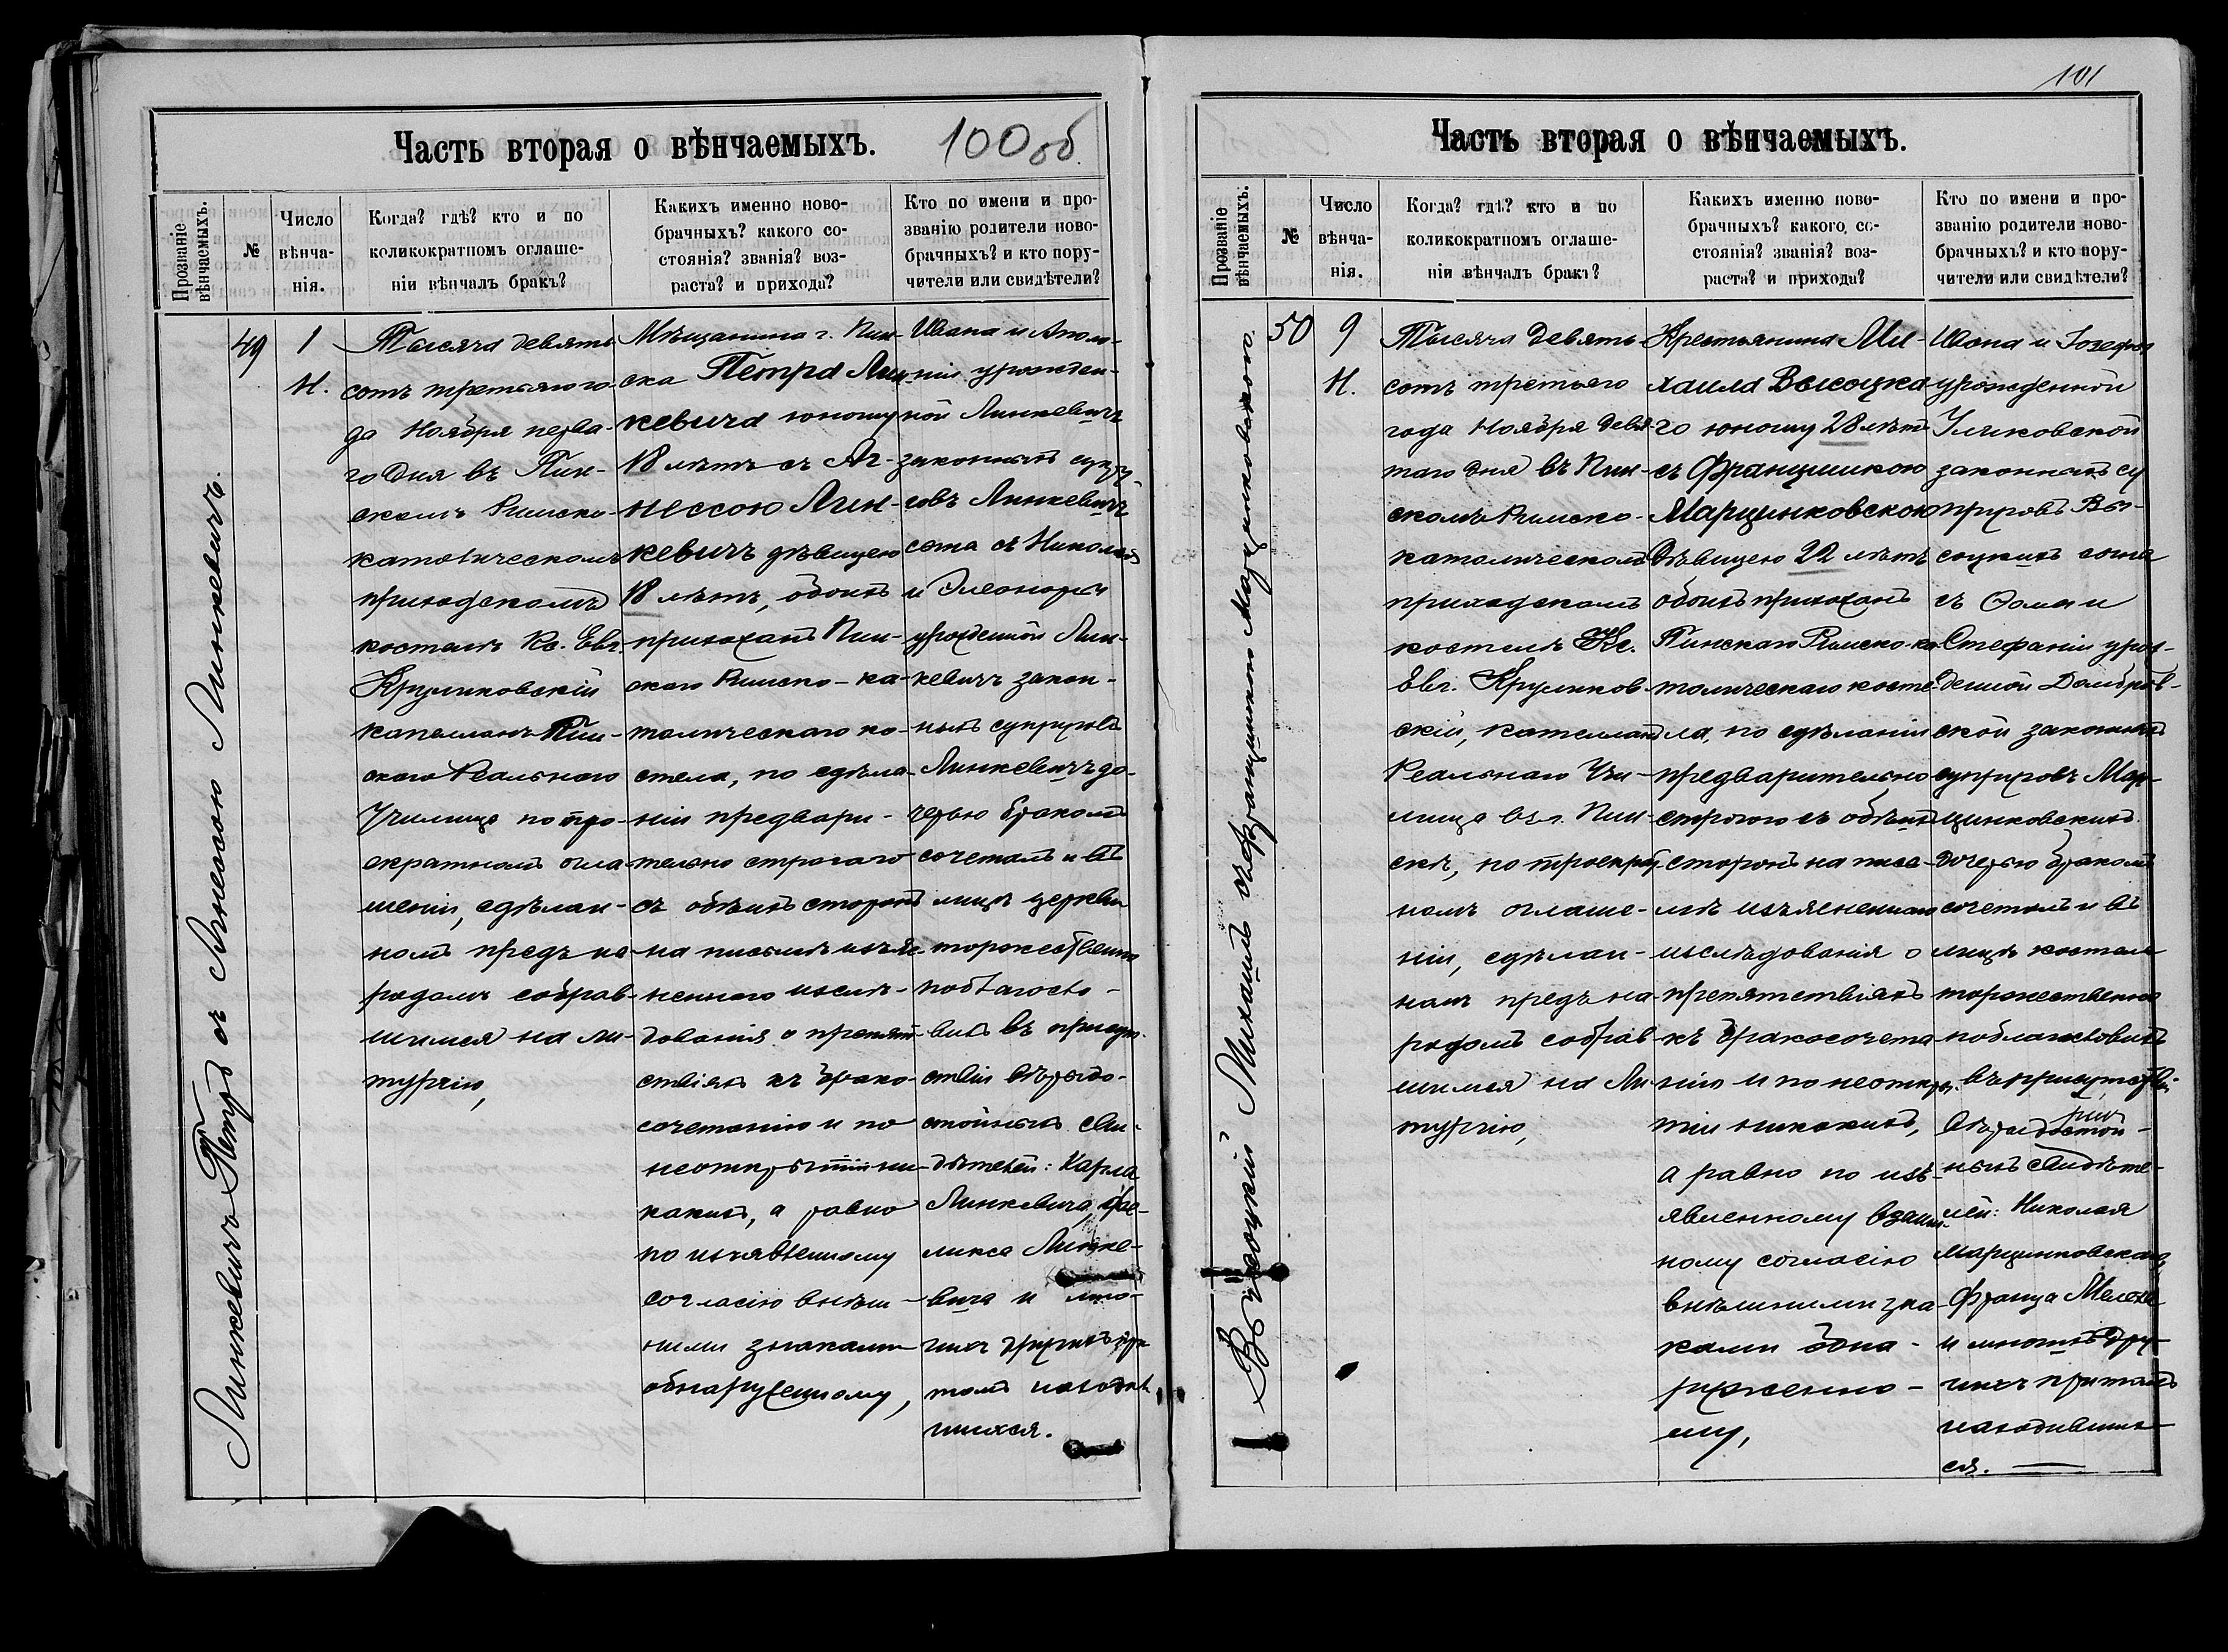 Часть вторая о вѣнчаемыхъ.
100 об.
Прозваніе вѣнчаемыхъ.
№
Число вѣнча-
нія.
Когда? гдѣ? кто и по
коликократномъ оглаше-
ніи вѣнчалъ бракъ?
Какихъ именно ново-
брачныхъ? какого со-
стоянія? званія? воз-
раста? и прихода?
Кто по имени и про-
званію родители ново-
брачныхъ? и кто пору-
чители или свидѣтели?
Линкевичъ Петръ съ Агнессою Линкевичъ.
49
1
Н.
Тысяча девять
сотъ третьяго го-
да Ноября перва-
го дня въ Пин-
скомъ Римско-
католическомъ
приходскомъ
костелѣ Кс. Евг.
Круликовскій
капелланъ Пин-
скаго Реальнаго
Училища по тро-
екратномъ огла-
шеніи, сдѣлан-
номъ предъ на-
родомъ собрав-
шимся на ли-
тургію,
Мѣщанина г. Пин-
ска Петра Лин-
кевича юношу
18 лѣтъ съ Аг-
нессою Лин-
кевичъ дѣвицею
18 лѣтъ, обоихъ
прихожанъ Пин-
скаго Римско-ка-
толическаго ко-
стела, по сдѣла-
ніи предвари-
тельно строгаго
съ обѣихъ сторонъ
на письмѣ изъяс-
неннаго изслѣ-
дованія о препят-
ствіяхъ къ брако-
сочетанію и по
неоткрытіи ни-
какихъ, а равно
по изъявленному
согласію внѣш-
ними знаками
обнаруженному,
Ивана и Аполо-
ніи урожден-
ной Линкевичъ
законныхъ супру-
говъ Линкевичъ
сына съ Николая
и Элеоноры
урожденной Лин-
кевичъ закон-
ныхъ супруговъ
Линкевичъ до-
черью бракомъ
сочеталъ и въ
лицѣ церкви
торжественно
поблагосло-
вилъ въ присут-
ствіи вѣродо-
стойныхъ сви-
дѣтелей: Карла
Линкевича, Фе-
ликса Линке-
вича и мно-
гихъ другихъ при
томъ находив-
шихся.
101
Часть вторая о вѣнчаемыхъ.
Прозваніе вѣнчаемыхъ.
№
Число
вѣнча-
нія.
Когда? гдѣ? кто и по
коликократномъ оглаше-
ніи вѣнчалъ бракъ?
Какихъ именно ново-
брачныхъ? какого со-
стоянія? званія? воз-
раста? и прихода?
Кто по имени и про-
званію родители ново-
брачныхъ? и кто пору-
чители или свидѣтели?
Высоцкій Михаилъ съ Францишкою Марцинковскою.
50
9
Н.
Тысяча девять-
сотъ третьяго
года Ноября девя-
таго дня въ Пин-
скомъ Римско-
католическомъ
приходскомъ
костелѣ Кс.
Евг. Круликов-
скій, капелланъ
Реальнаго Учи-
лища въ г. Пин-
скѣ, по троекрат-
номъ оглаше-
ніи, сдѣлан-
номъ предъ на-
родомъ собрав-
шимся на Ли-
тургію,
Крестьянина Ми-
хаила Высоцка-
го юношу 28 лѣтъ
съ Францишкою
Марцинковскою
дѣвицею 22 лѣтъ
обоихъ прихожанъ
Пинскаго Римско-ка-
толическаго косте-
ла, по сдѣланіи
предварительно
строгого съ обѣихъ
сторонъ на пись-
мѣ изъясненнаго
изслѣдованія о
препятствіяхъ
къ бракосочета-
нію и по неоткры-
тіи никакихъ,
а равно по изъ-
явленному взаим-
ному согласію
внѣшними зна-
ками обна-
руженно-
му,
Ивана и Іозефы
урожденной
законныхъ су
пруговъ Вы-
соцкихъ сына
съ Фомы и
Стефаніи урож-
денной Домбров-
ской законныхъ
супруговъ Мар-
цинковскихъ
дочерью бракомъ
сочеталъ и въ
лицѣ костела
торжественно
поблагословилъ
въ присутствіи
вѣродостой-
ныхъ свидѣте-
лей: Николая
Марцинковскаго,
Франца
и многихъ дру-
гихъ притомъ
находивших-
ся.